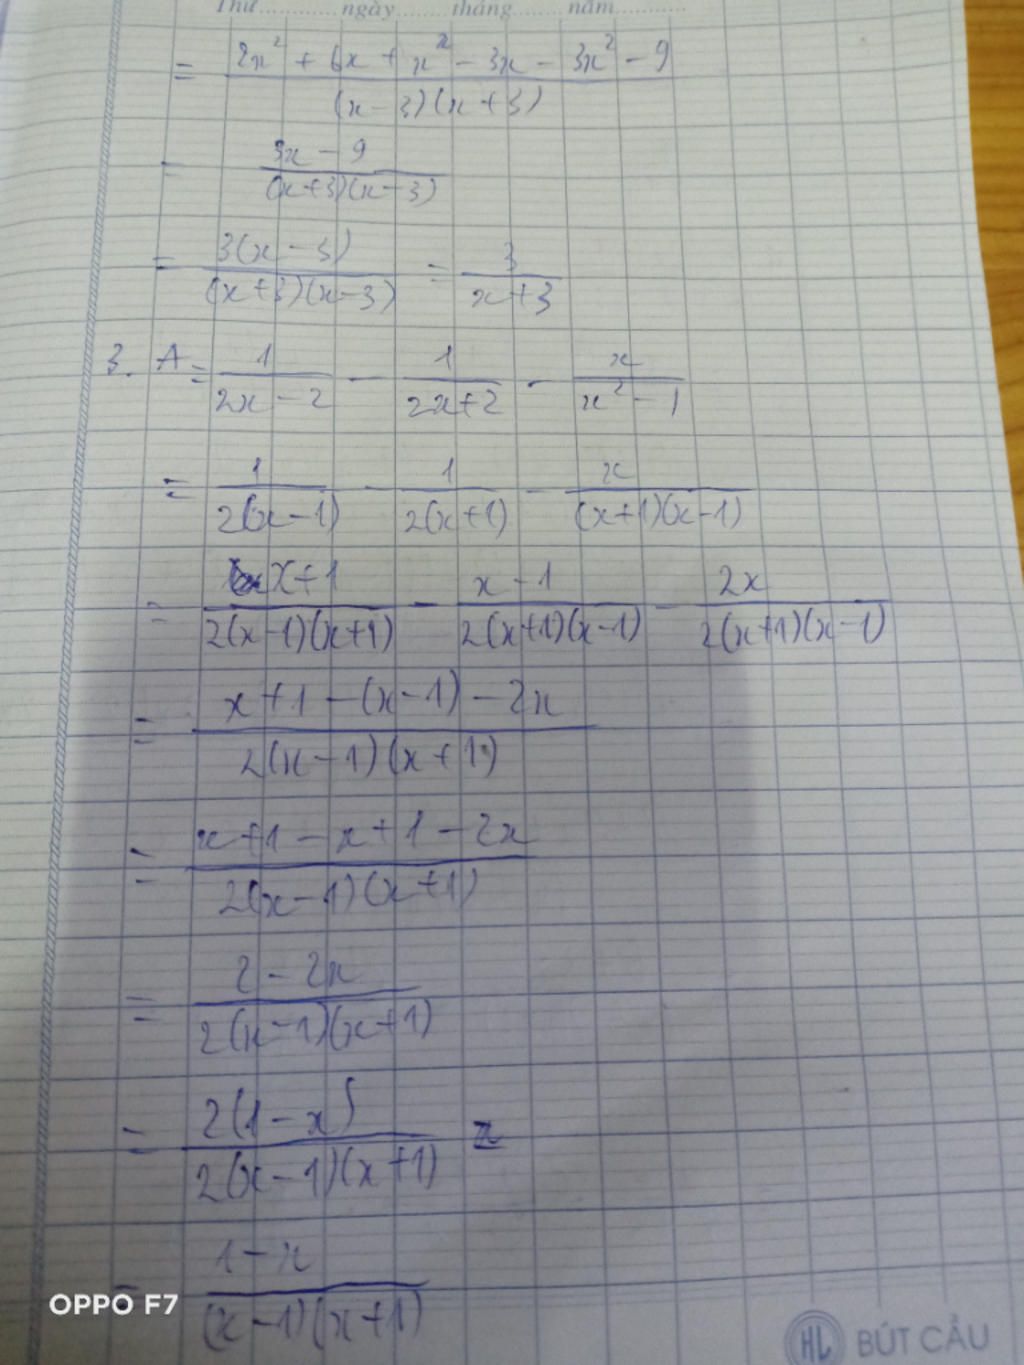 Thứ ngày tháng năm
= (2x² + 6x + x² - 3x - 3x² - 9)/((x - 3)(x + 3))
= (3x - 9)/((x+3)(x-3))
= (3(x - 3))/((x+3)(x-3)) = 3/(x+3)
3. A = 1/(2x - 2) - 1/(2x+2) - x/(x² - 1)
= 1/(2(x-1)) - 1/(2(x+1)) - x/((x+1)(x-1))
= (x+1)/(2(x-1)(x+1)) - (x-1)/(2(x+1)(x-1)) - 2x/(2(x+1)(x-1))
= (x+1-(x-1)-2x)/(2(x-1)(x+1))
= (x+1-x+1-2x)/(2(x-1)(x+1))
= (2-2x)/(2(x-1)(x+1))
= (2(1-x))/(2(x-1)(x+1)) =
= (1-x)/((x-1)(x+1))
OPPO F7
HL BÚT CẦU